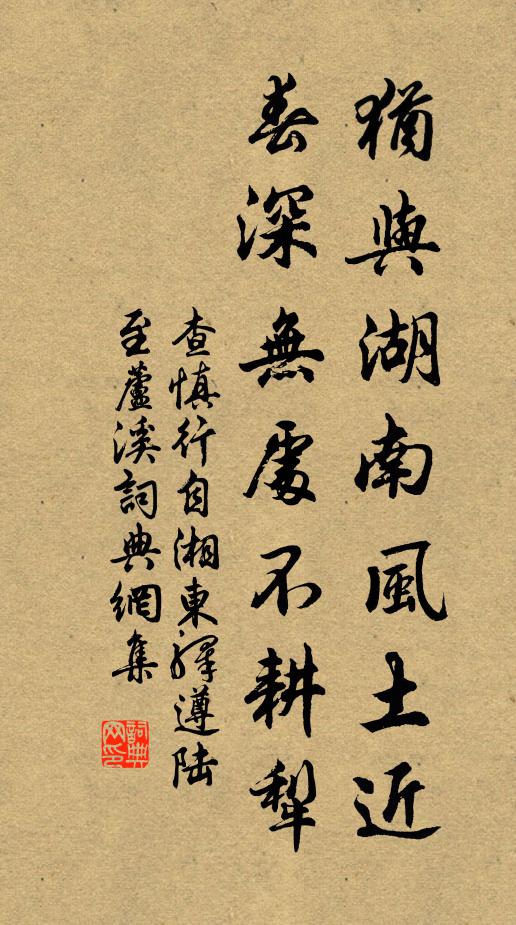 猶與湖南風土近
春深無處不耕犁
查慎行自湘東驛遵陸
至蘆溪詞典網集
詞典网印